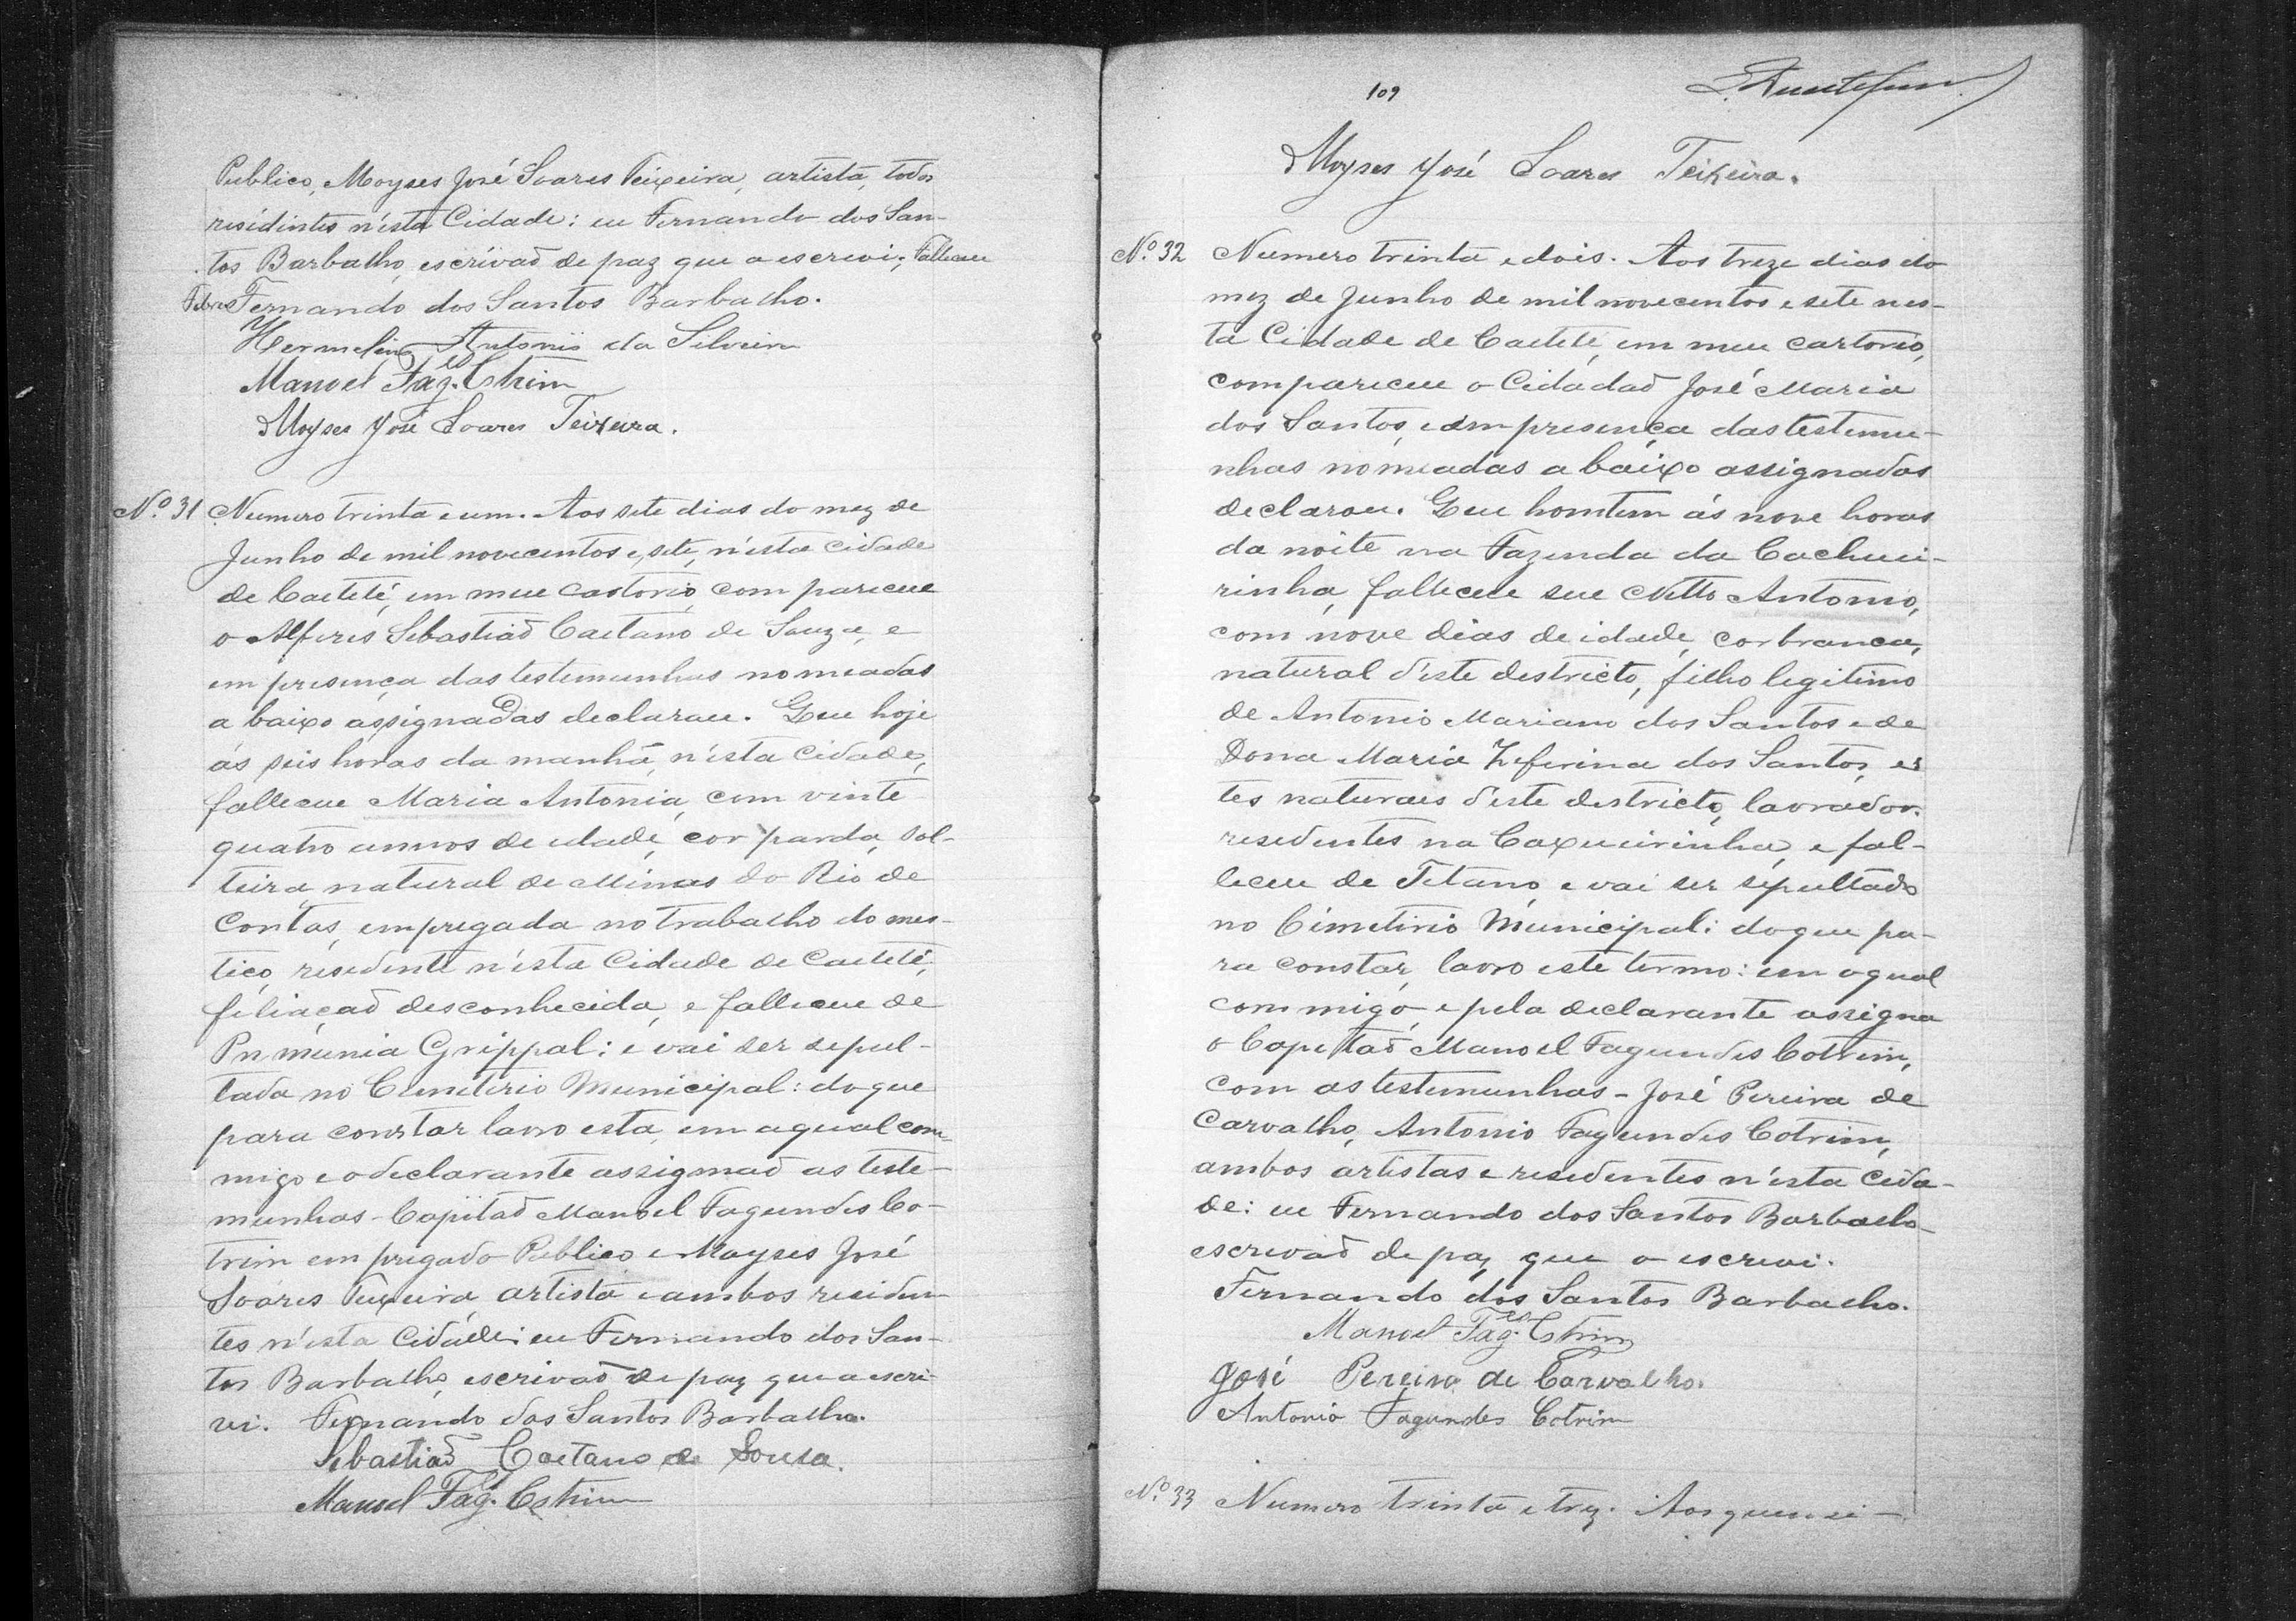 Publico, Moyses José Soares Teixeira, artista, todos
residintes n'ésta Cidade: eu Fernando dos San-
tos Barbalho, escrivaõ de paz que a escrevi; Falleceu
Febres Fernando dos Santos Barbalho.
Hermelino Antonio da Silveira
Manoel Fag.es Cotrim
Moyses José Soares Teixeira.
Nº 31 Numero trinta e um. Aos sete dias do mez de
Junho de mil novecentos e sete, n'ésta cidade
de Caeteté, em meu Cartorio, com pareceu
o Alferes Sebastiaõ Caetano de Souza, e
em presença das testemunhas nomeadas
a baixo assignadas declarou. Que hoje
ás seis horas da manhã, n'ésta Cidade,
falleceu Maria Antonia, com vinte
quatro annos de idade, cor parda, sol-
teira natural de Minas do Rio de
Contas, empregada no trabalho domes-
tico, residente n'ésta Cidade de Caeteté,
filiaçaõ desconhecida, e falleceu de
Pnmunia Grippal: e vai ser sepul-
tada no Cemeterio Municipal: do que
para constar lavro esta, em a qual com-
migo e o declarante assignaõ as teste-
munhas - Capitaõ Manoel Fagundes Co-
trim empregado Publico e Moyses José
Soares Teixeira, artista e ambos residen
tes n'ésta Cidade: eu Fernando dos San-
tos Barbalho escrivaõ de paz que a escri-
vi. Fernando dos Santos Barbalho.
Sebastiaõ Caetano de Sousa.
Manoel Fag.es Cotrim
109
Moyses José Soares Teixeira.
Nº 32 Numero trinta e dois. Aos treze dias do
mez de Junho de mil novecentos e sete nes-
ta Cidade de Caeteté, em meu cartorio,
compareceu o Cidadaõ José Maria
dos Santos, e em presença das testemu-
nhas nomeadas a baixo assignados
declarou. Que hontem ás nove horas
da noite na Fazenda da Cachuei-
rinha, falleceu seu Netto Antonio,
com nove dias de idade, cor branca,
natural d'éste destricto, filho legitimo
de Antonio Mariano dos Santos e de
Dona Maria Zeferina dos Santos, es
tes naturaes d'éste destricto, lavrador.
residentes na Caxueirinha, e fal-
leceu de Tetano, e vai ser sepultado
no Cimeterio Municipal: do que pa-
ra constar, lavro este termo: em o qual
commigo, e pela declarante assigna
o Capitaõ Manoel Fagundes Cotrim,
com as testemunhas - José Pereira de
Carvalho, Antonio Fagundes Cotrim,
ambos artistas e residentes n'ésta Cida-
de: eu Fernando dos Santos Barbalho
escrevaõ de paz que o escrevi.
Fernando dos Santos Barbalho.
Manoel Fag.es Cotrim
José Pereira de Carvalho.
Antonio Fagundes Cotrim
Nº 33 Numero trinta e trez. Aos quinsi-